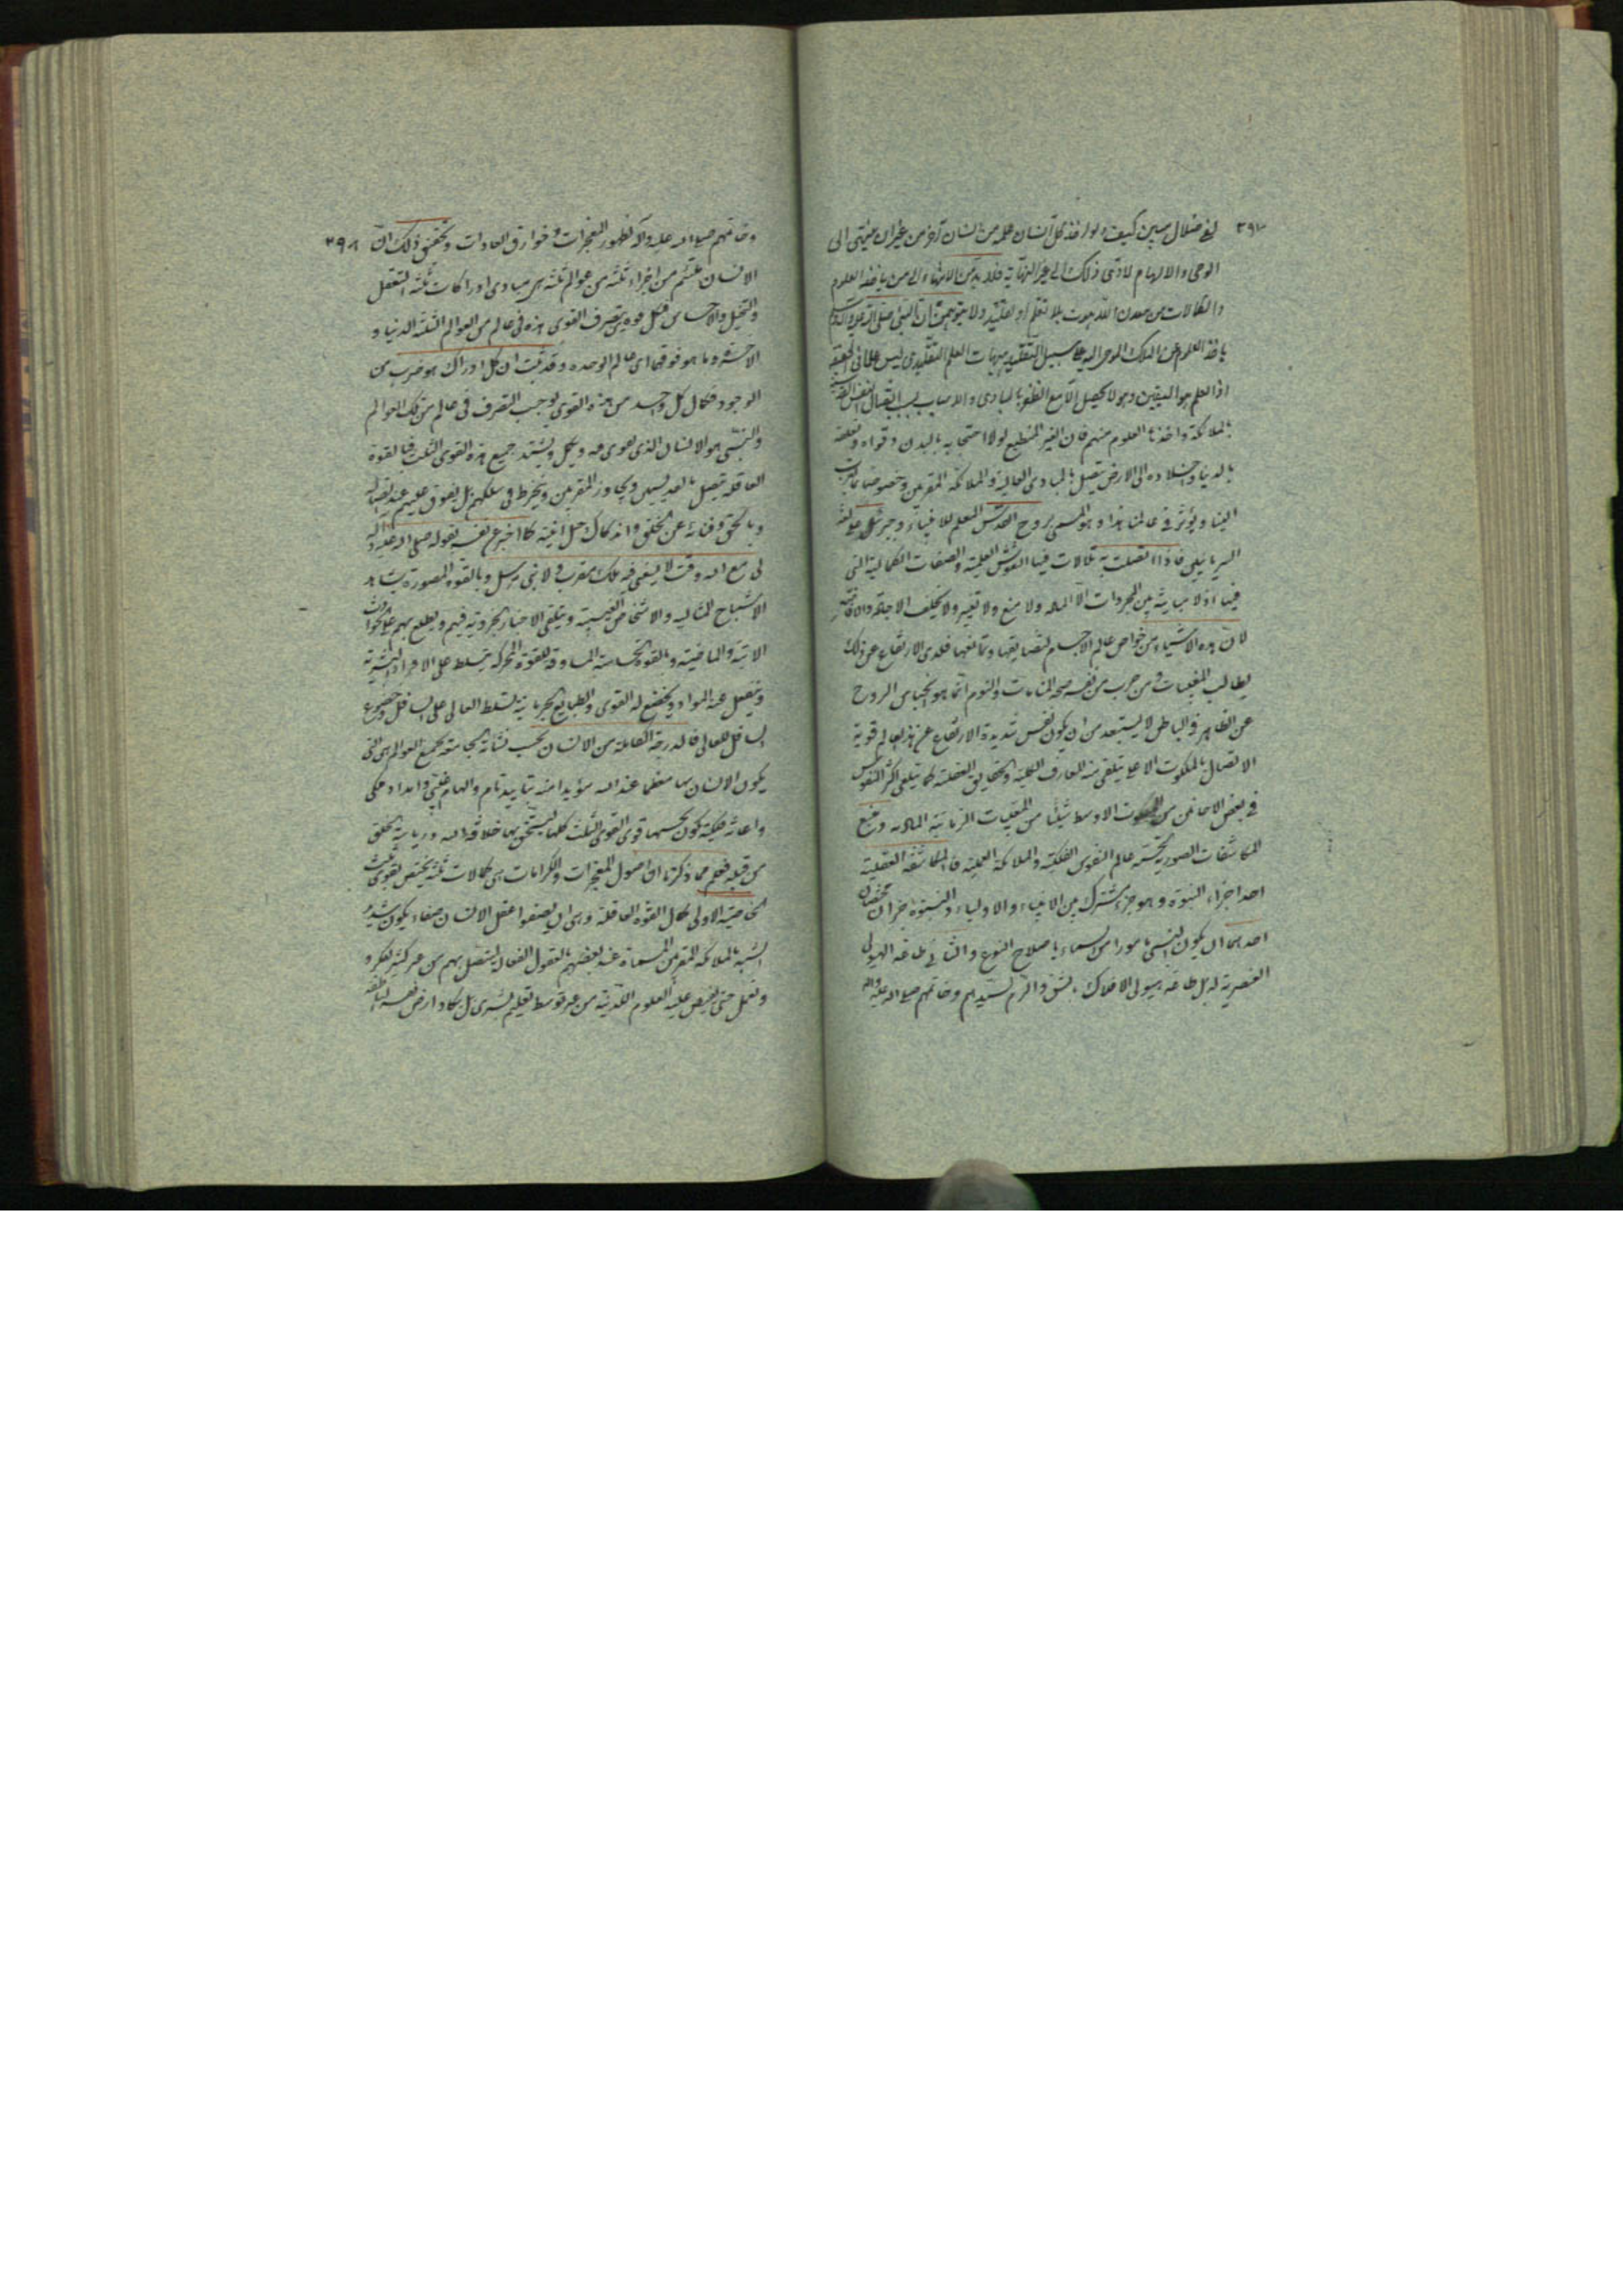 ٣٩٧ لفى ضلال مبين كيف ولو اخذ كل انسان علمه من انسان آخر من غير ان ينتهى الى
الوحى والالهام لادى ذلك الى غير النهاية فلا بد من الانتهاء الى من ياخذ العلوم
والكمالات من معدن اللاهوت بلا تعلم او تقليد ولا يتوهمن ان النبى صلى الله عليه وآله
ياخذ العلوم من الملك الموحى اليه على سبيل التقليد هيهات العلم التقليدى ليس علما فى الحقيقة
اذ العلم هو اليقين وهو لا يحصل الا مع الظفر بالمبادى والاسباب بل باتصال النفس
بالملائكة واخذها العلوم منهم فان الغير المنطبع لولا احتجابه بالبدن وقواه وتعلقه
بالدنيا واخلاده الى الارض يتصل بالمبادى العالية والملائكة المقربين وخصوصا ما قرب
الينا ويؤثر فى عالمنا هذا وهو المسمى بروح القدس المعلم للانبياء وجبرئيل على لغة
السريانيين فاذا اتصلت به تلألأت فيها النقوش العلمية والصفات الكمالية التى
فيها اذ لا مباينة بين المجردات الا بالمادة ولا منع ولا تغير ولا يختلف
لان هذه الاشياء من خواص عالم الاجسام لتضايقها وتمانعها فلدى الارتفاع عن ذلك
يطالب المغيبات ومن جرب من نفسه صحة المنامات والنوم انما هو انحباس الروح
عن الظاهر فى الباطن لا يستبعد من ان يكون نفس شديدة الارتفاع عن هذا العالم قوية
الاتصال بالملكوت الاعلى يتلقى منه المعارف الكلية والحقايق العقلية كما يتلقى اكثر النفوس
فى بعض الاحائن من الملكوت الاوسط شيئا من المغيبات الزمانية
المكاشفات الصورية عالم النفوس الفلكية والملائكة العملية فالمكاشفة العقلية
احد اجزاء النبوة وهو جزء مشترك بين الانبياء والاولياء وللنبوة جزءان مختصان
احدهما ان يكون النبى مامورا من السماء باصلاح النوع والثانى طاعة الهيولى
العنصرية له بل طاعة هيولى الافلاك لشق القمر لسيدهم وخاتمهم صلى الله عليه وآله
وخاتمهم صلى الله عليه وآله لظهور المعجزات وخوارق العادات وتحقيق ذلك ان ٣٩٨
الانسان ملتئم من اجزاء ثلثة من عوالم ثلثة هى مبادى ادراكات ثلثة التعقل
والتخيل والاحساس فكل قوة يتصرف القوى هذه فى عالم من العوالم الثلثة الدنيا و
الاخرة وما هو فوقها اى عالم الوحدة وقد ثبت ان كل ادراك هو ضرب من
الوجود فكمال كل واحد من هذه القوى يوجب التصرف فى عالم من تلك العوالم
والنبى هو الانسان الذى يقوى فيه ويكمل ويشتد جميع هذه القوى الثلث فبالقوة
العاقلة يتصل بالقديسين ويجاور المقربين وينخرط فى سلكهم بل يفوق عليهم عند اتصاله
وبالحق وفنائه عن الخلق كما اخبر عن نفسه بقوله صلى الله عليه وآله
لى مع الله وقت لا يسعنى فيه ملك مقرب ولا نبى مرسل وبالقوة المصورة يشاهد
الاشباح المثالية والاشخاص الغيبية ويتلقى الاخبار الجزوية فيهم ويطلع بهم على الحوادث
الاتية والماضية وبالقوة الحساسة المساوقة للقوة المحركة يتسلط على الافراد البشرية
وينفعل عنه المواد ويخضع له القوى والطبايع الجرمانية لتسلط العالى على السافل وخضوع
السافل للعالى فالدرجة الكاملة من الانسان بحسب نشأته الجامعة لجميع العوالم هى التى
يكون الانسان بها معظما عند الله مؤيدا منه بتاييد تام والهام غيبى وامداد ملكى
واعانة فلكية يكون بحسبها قوى القوى الثلث كلها ليستحق بها خلافة الله ورياسة الخلق
من قبله فعلم مما ذكرنا ان اصول المعجزات والكرامات هى كمالات ثلثة يختص بقوى ثلث
الخاصية الاولى كمال القوة العاقلة وهى ان يصفو عقل الانسان صفاء يكون شديد
الشبه بالملائكة المقربين المسماة عند بعضهم بالعقول الفعالة ليتصل بهم من غير كثير تفكر و
وتعمل حتى يفيض عليه العلوم اللدنية من غير توسط تعليم بشرى بل يكاد ارض نفسه الناطقة